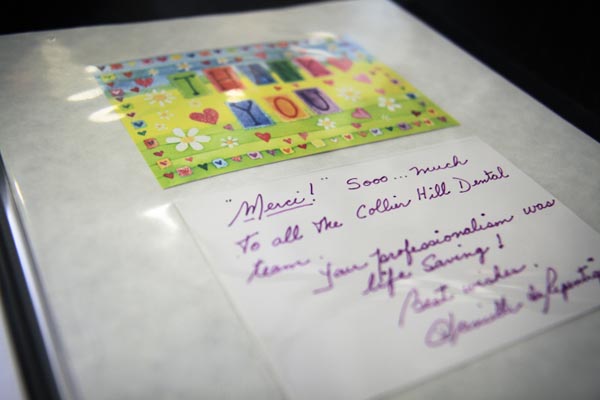 THANK
YOU
"Merci!" Sooo...much
To all the Collier Hill Dental
team. Your professionalism was
life saving!
Best wishes.